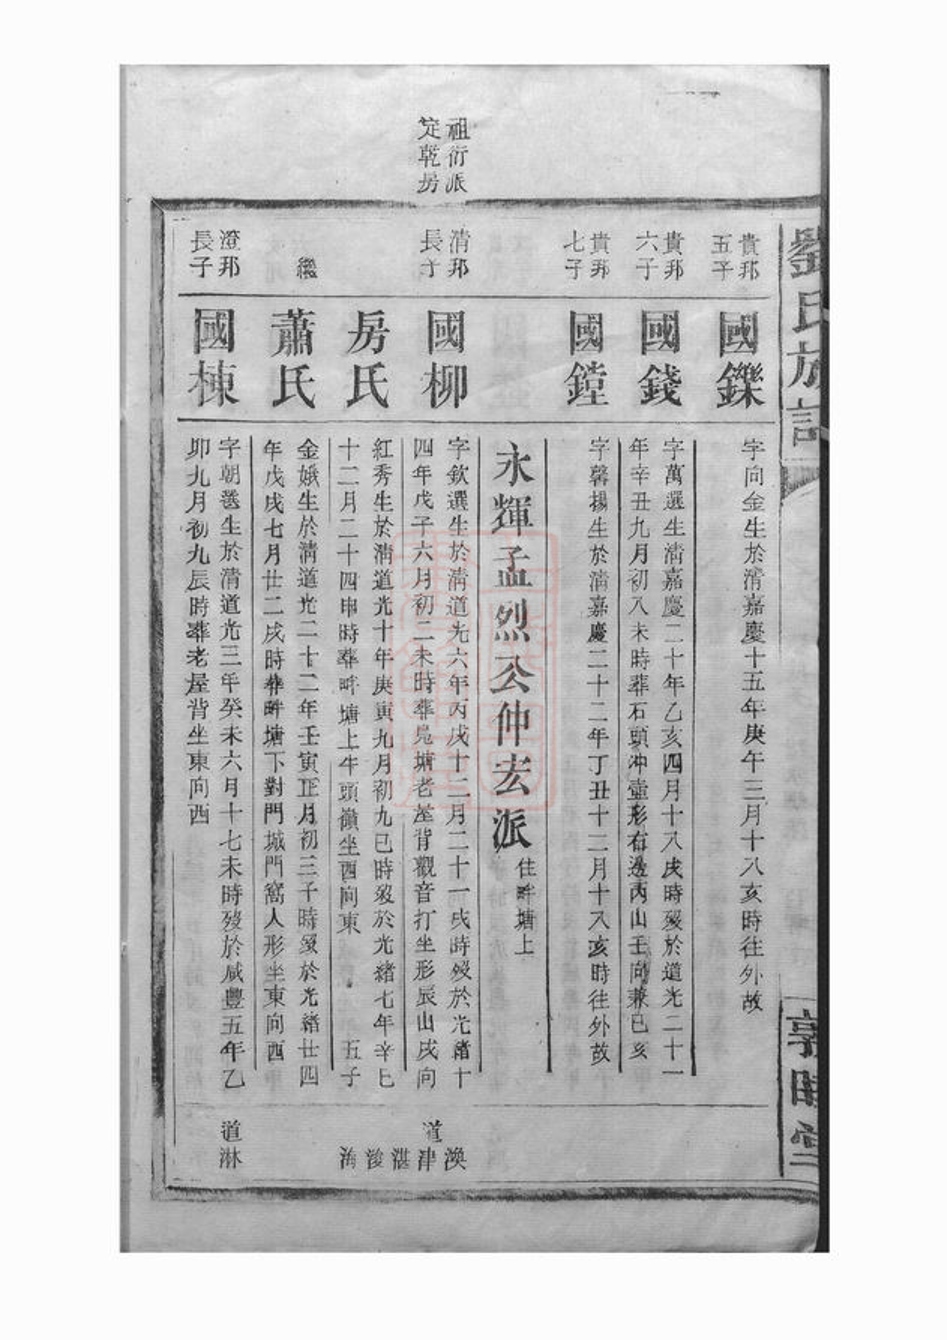 劉氏族譜
敦睦堂
貴邦
五子
國鑠
字向金生於清嘉慶十五年庚午三月十八亥時往外故
貴邦
六子
國錢
字萬選生清嘉慶二十年乙亥四月十八戌時歿於道光二十一
年辛丑九月初八未時葬石頭冲壷形右邊丙山壬向兼巳亥
貴邦
七子
國鏜
字馨揚生於清嘉慶二十二年丁丑十二月十八亥時往外故
永輝孟烈公仲玄派
住畔塘上
祖衍派
定乾房
清邦
長子
國柳
字欽選生於清道光六年丙戌十二月二十一戌時歿於光緒十
四年戊子六月初二未時葬鳧塘老屋背觀音打坐形辰山戌向
道
渙
津
湛
浚
海
房氏
紅秀生於清道光十年庚寅九月初九巳時歿於光緒七年辛巳
十二月二十四申時葬畔塘上牛頭嶺坐西向東
五子
繼
蕭氏
金娥生於清道光二十二年壬寅正月初三子時歿於光緒廿四
年戊戌七月廿二戌時葬畔塘下對門城門窩人形坐東向西
澄邦
長子
國棟
字朝選生於清道光三年癸未六月十七未時歿於咸豐五年乙
卯九月初九辰時葬老屋背坐東向西
道淋